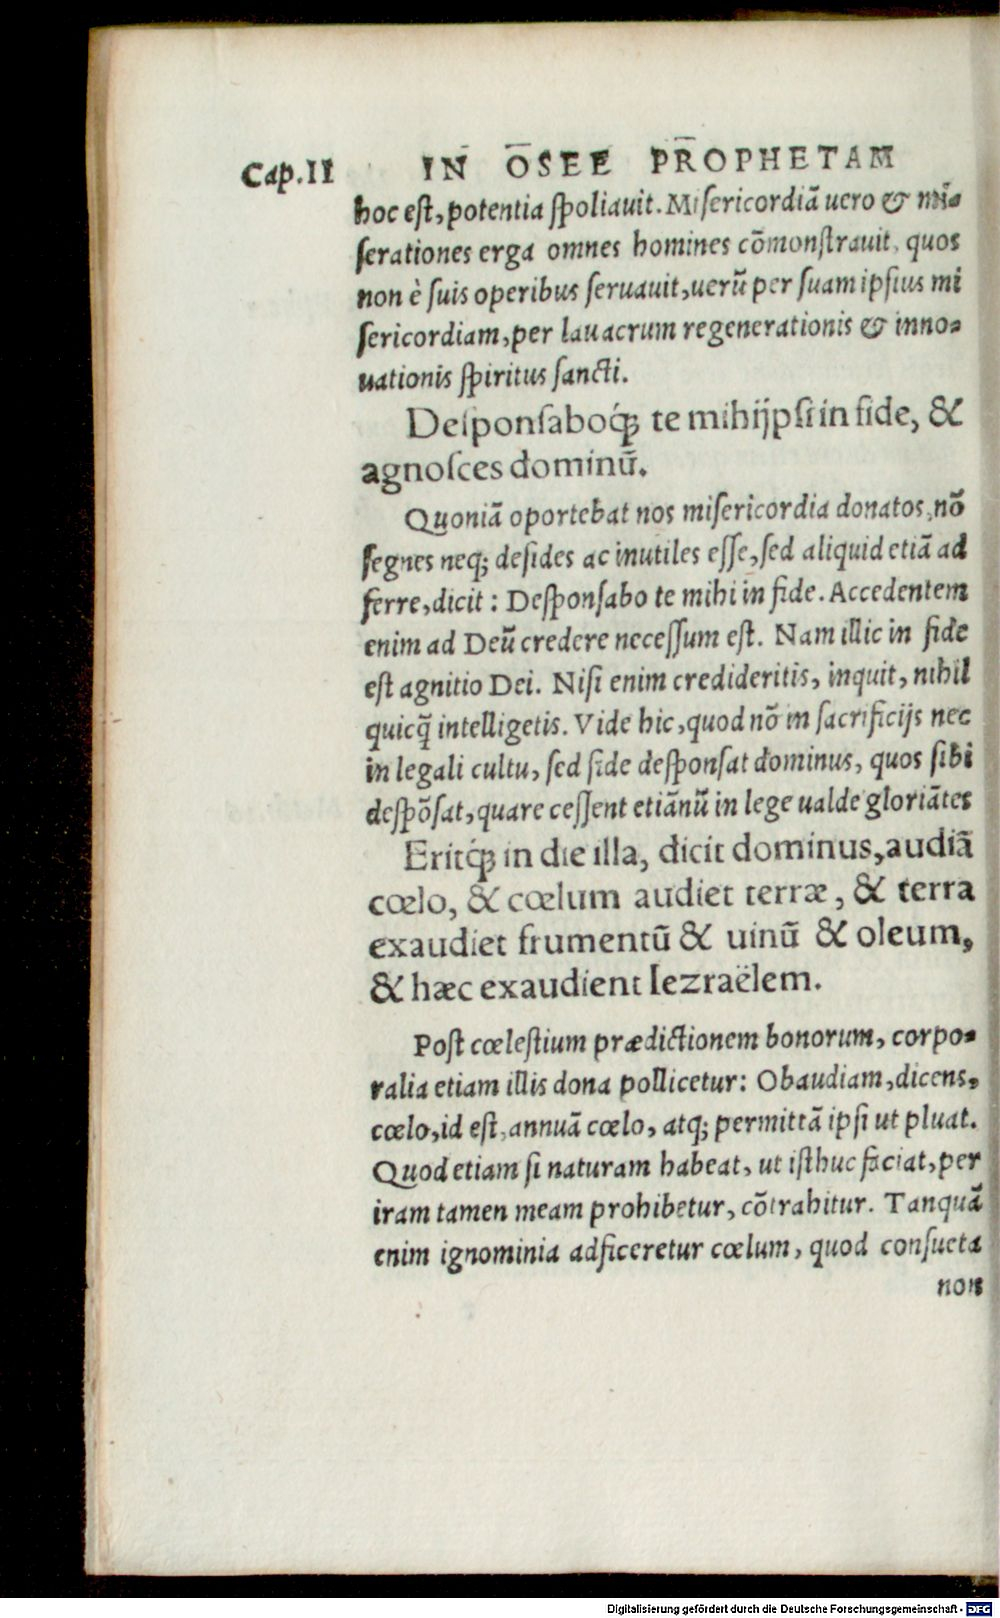 Cap.II IN OSEE PROPHETAM
hoc eſt, potentia ſpoliauit. Miſericordiã uero & mi-
ſerationes erga omnes homines cõmonſtrauit, quos
non è ſuis operibus ſeruauit, uerũ per ſuam ipſius mi
ſericordiam, per lauacrum regenerationis & inno-
uationis ſpiritus ſancti.
Deſponſaboq́; te mihijpſi in fide, &
agnoſces dominũ.
Quoniã oportebat nos miſericordia donatos, nõ
ſegnes neq; deſides ac inutiles eſſe, ſed aliquid etiã ad
ferre, dicit: Deſponſabo te mihi in fide. Accedentem
enim ad Deũ credere neceſſum eſt. Nam illic in fide
eſt agnitio Dei. Niſi enim credideritis, inquit, nihil
quicq̃ intelligetis. Vide hic, quod nõ in ſacrificijs nec
in legali cultu, ſed fide deſponſat dominus, quos ſibi
deſpõſat, quare ceſſent etiãnũ in lege ualde gloriãtes
Eritq́; in die illa, dicit dominus, audiã
cœlo, & cœlum audiet terræ, & terra
exaudiet frumentũ & uinũ & oleum,
& hæc exaudient Iezraëlem.
Poſt cœleſtium prædictionem bonorum, corpo-
ralia etiam illis dona pollicetur: Obaudiam, dicens,
cœlo, id eſt, annuã cœlo, atq; permittã ipſi ut pluat.
Quod etiam ſi naturam habeat, ut iſthuc faciat, per
iram tamen meam prohibetur, cõtrahitur. Tanquã
enim ignominia adficeretur cœlum, quod conſueta
non
Digitalisierung gefördert durch die Deutsche Forschungsgemeinschaft - DFG